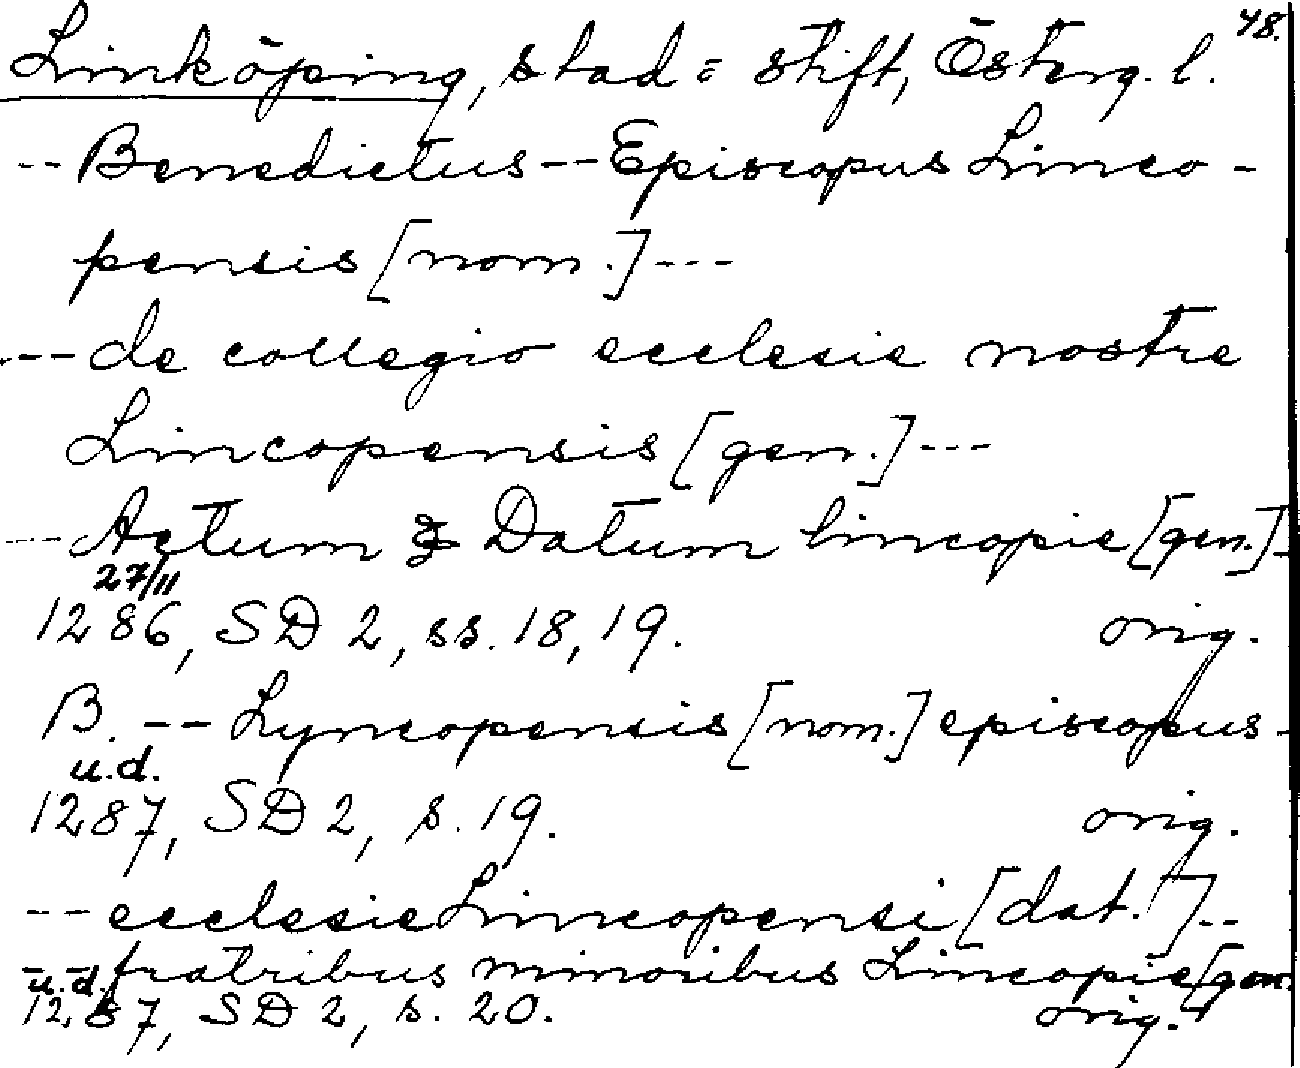 48.
Linköping, stad = stift, Österg. l.
-- Benedictus -- Episcopus Linco-
pensis [nom.] ---
--- de collegio ecclesie nostre
Lincopensis [gen.] ---
--- Actum & Datum lincopie [gen.]
27/11
1286, SD 2, ss. 18, 19. orig.
B. -- Lyncopensis [nom.] episcopus -
u.d.
1287, SD 2, s. 19. orig.
-- ecclesie Lincopensi [dat.] --
-- fratribus minoribus Lincopie [gen.
u.d.
1287, SD 2, s. 20. orig.